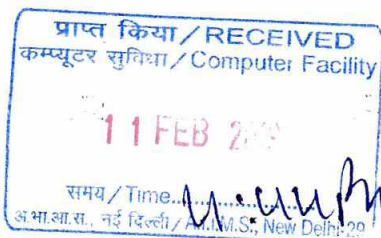 प्राप्त किया / RECEIVED
कम्प्यूटर सुविधा / Computer Facility
11 FEB
समय / Time..........
अ.भा.आ.स., नई दिल्ली / A.I.I.M.S., New Delhi-29